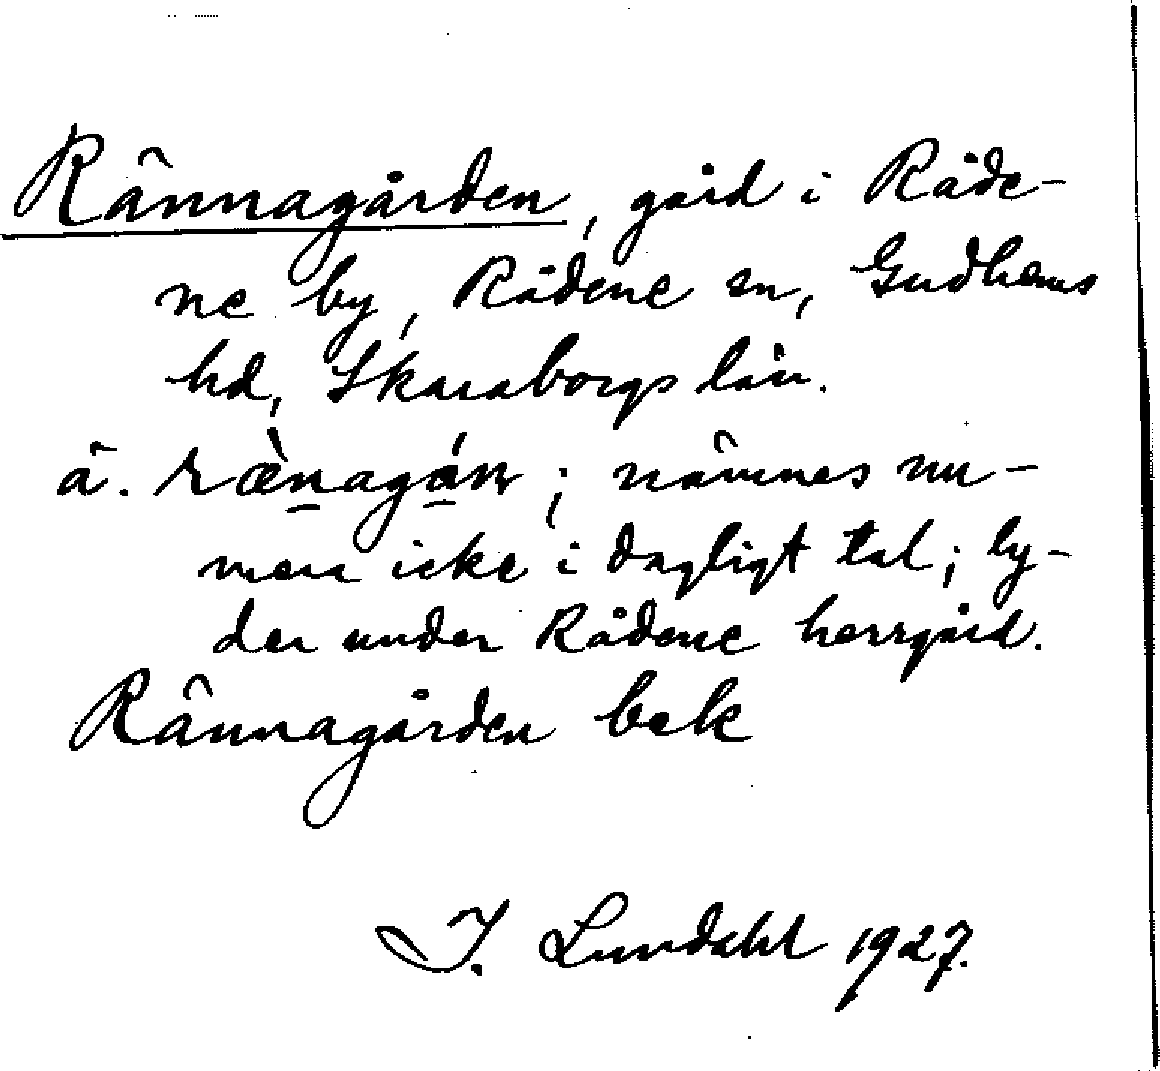 Rännagården, gård i Råde-
ne by, Rådene sn, Gudhems
hd, Skaraborgs län.
ä. ræ̀nagán; nämnes nu-
mera icke i dagligt tal; ly-
der under Rådene herrgård.
Rännagården bek
I. Lundahl 1927.